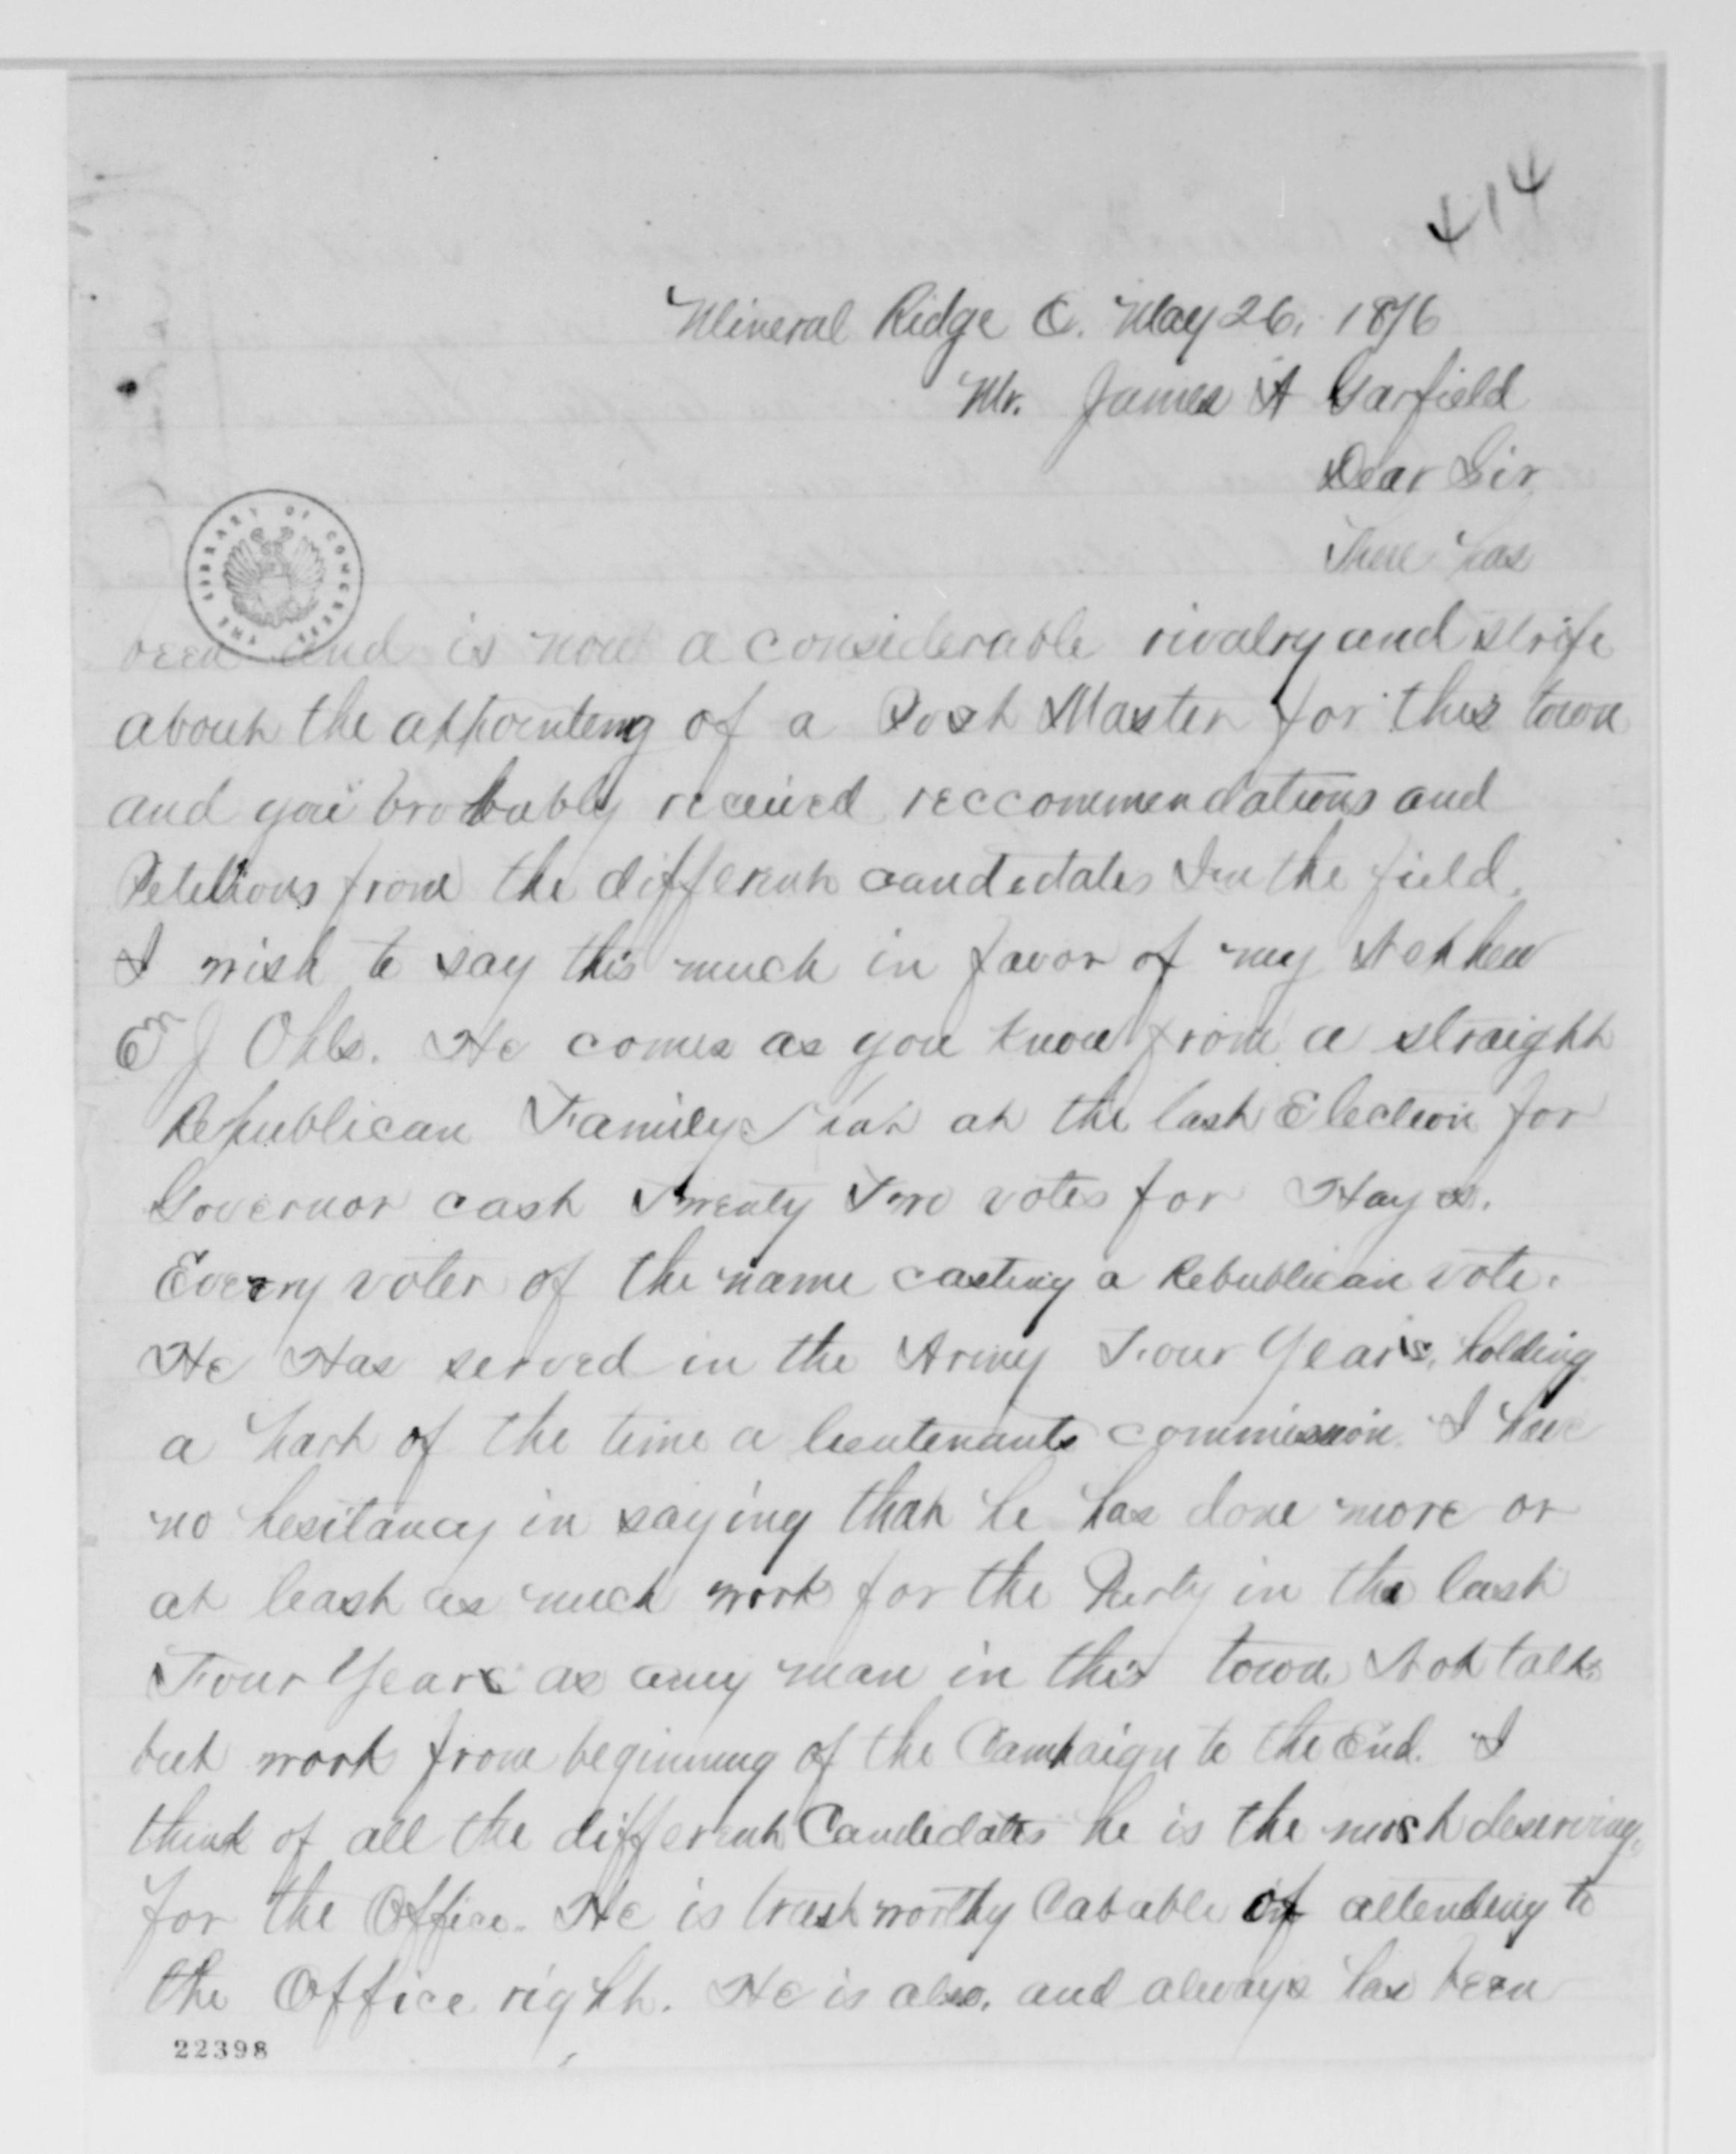 414
Mineral Ridge O. May 26, 1876
Mr. James A Garfield
Dear Sir
There has
THE LIBRARY OF CONGRESS
been and is now a considerable rivalry and strife
about the appointeng of a Post Master for this town
and you probably recieved reccommendations and
Petitions from the different candedates In the field.
I wish to say this much in favor of my Nephew
E J Ohls. He comes as you know from a straight
Republican Family that at the last Election for
Governor cast Twenty Two votes for Hayes.
Every voter of the name casting a Republican vote.
He Has served in the Army Four Years, holding
a part of the time a lieutenants commission. I have
no hesitancy in saying that he has done more or
at least as much work for the Party in the last
Four Years as any man in this town Not talk
but work from beginning of the Campaign to the End. I
think of all the different Candedates he is the most deserving
for the Office. He is trustworthy Capable of attending to
the Office right. He is also, and always has been
22398